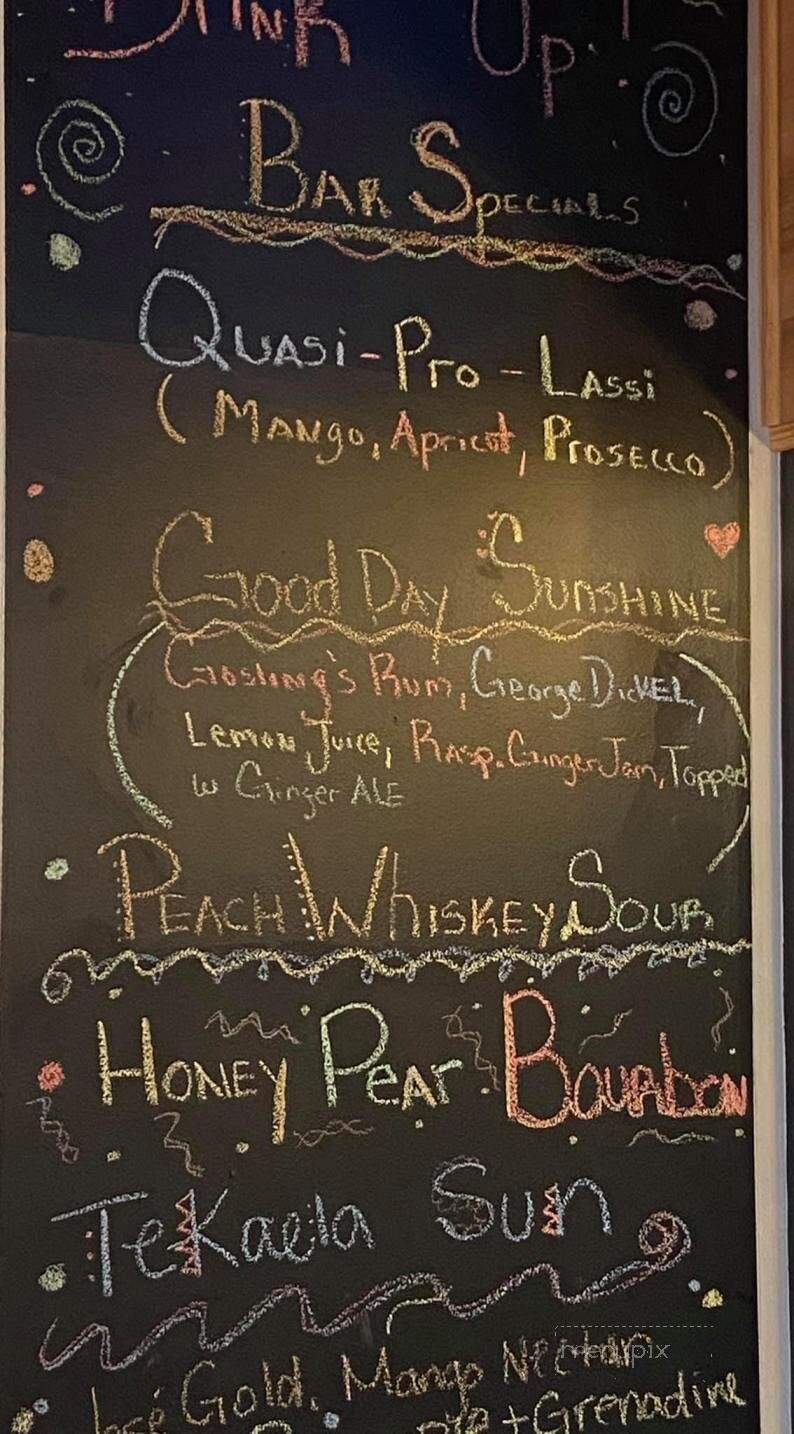 Drink Up
Bar Specials
Quasi-Pro-Lassi
(Mango, Apricot, Prosecco)
Good Day Sunshine
(Gosling's Rum, George Dickel,
Lemon Juice, Rasp. Ginger Jam, Topped
w Ginger Ale)
Peach Whiskey Sour
Honey Pear Bourbon
TeKaela Sun
José Gold, Mango Nectar
+ Grenadine
menupix